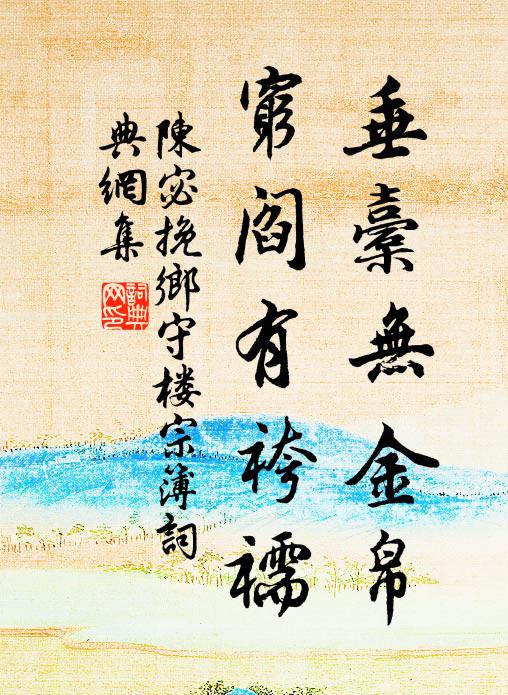 垂橐無金帛
窮閻有袴襦
陳宓挽鄉守楼宗簿詞
典網集
詞典
网印